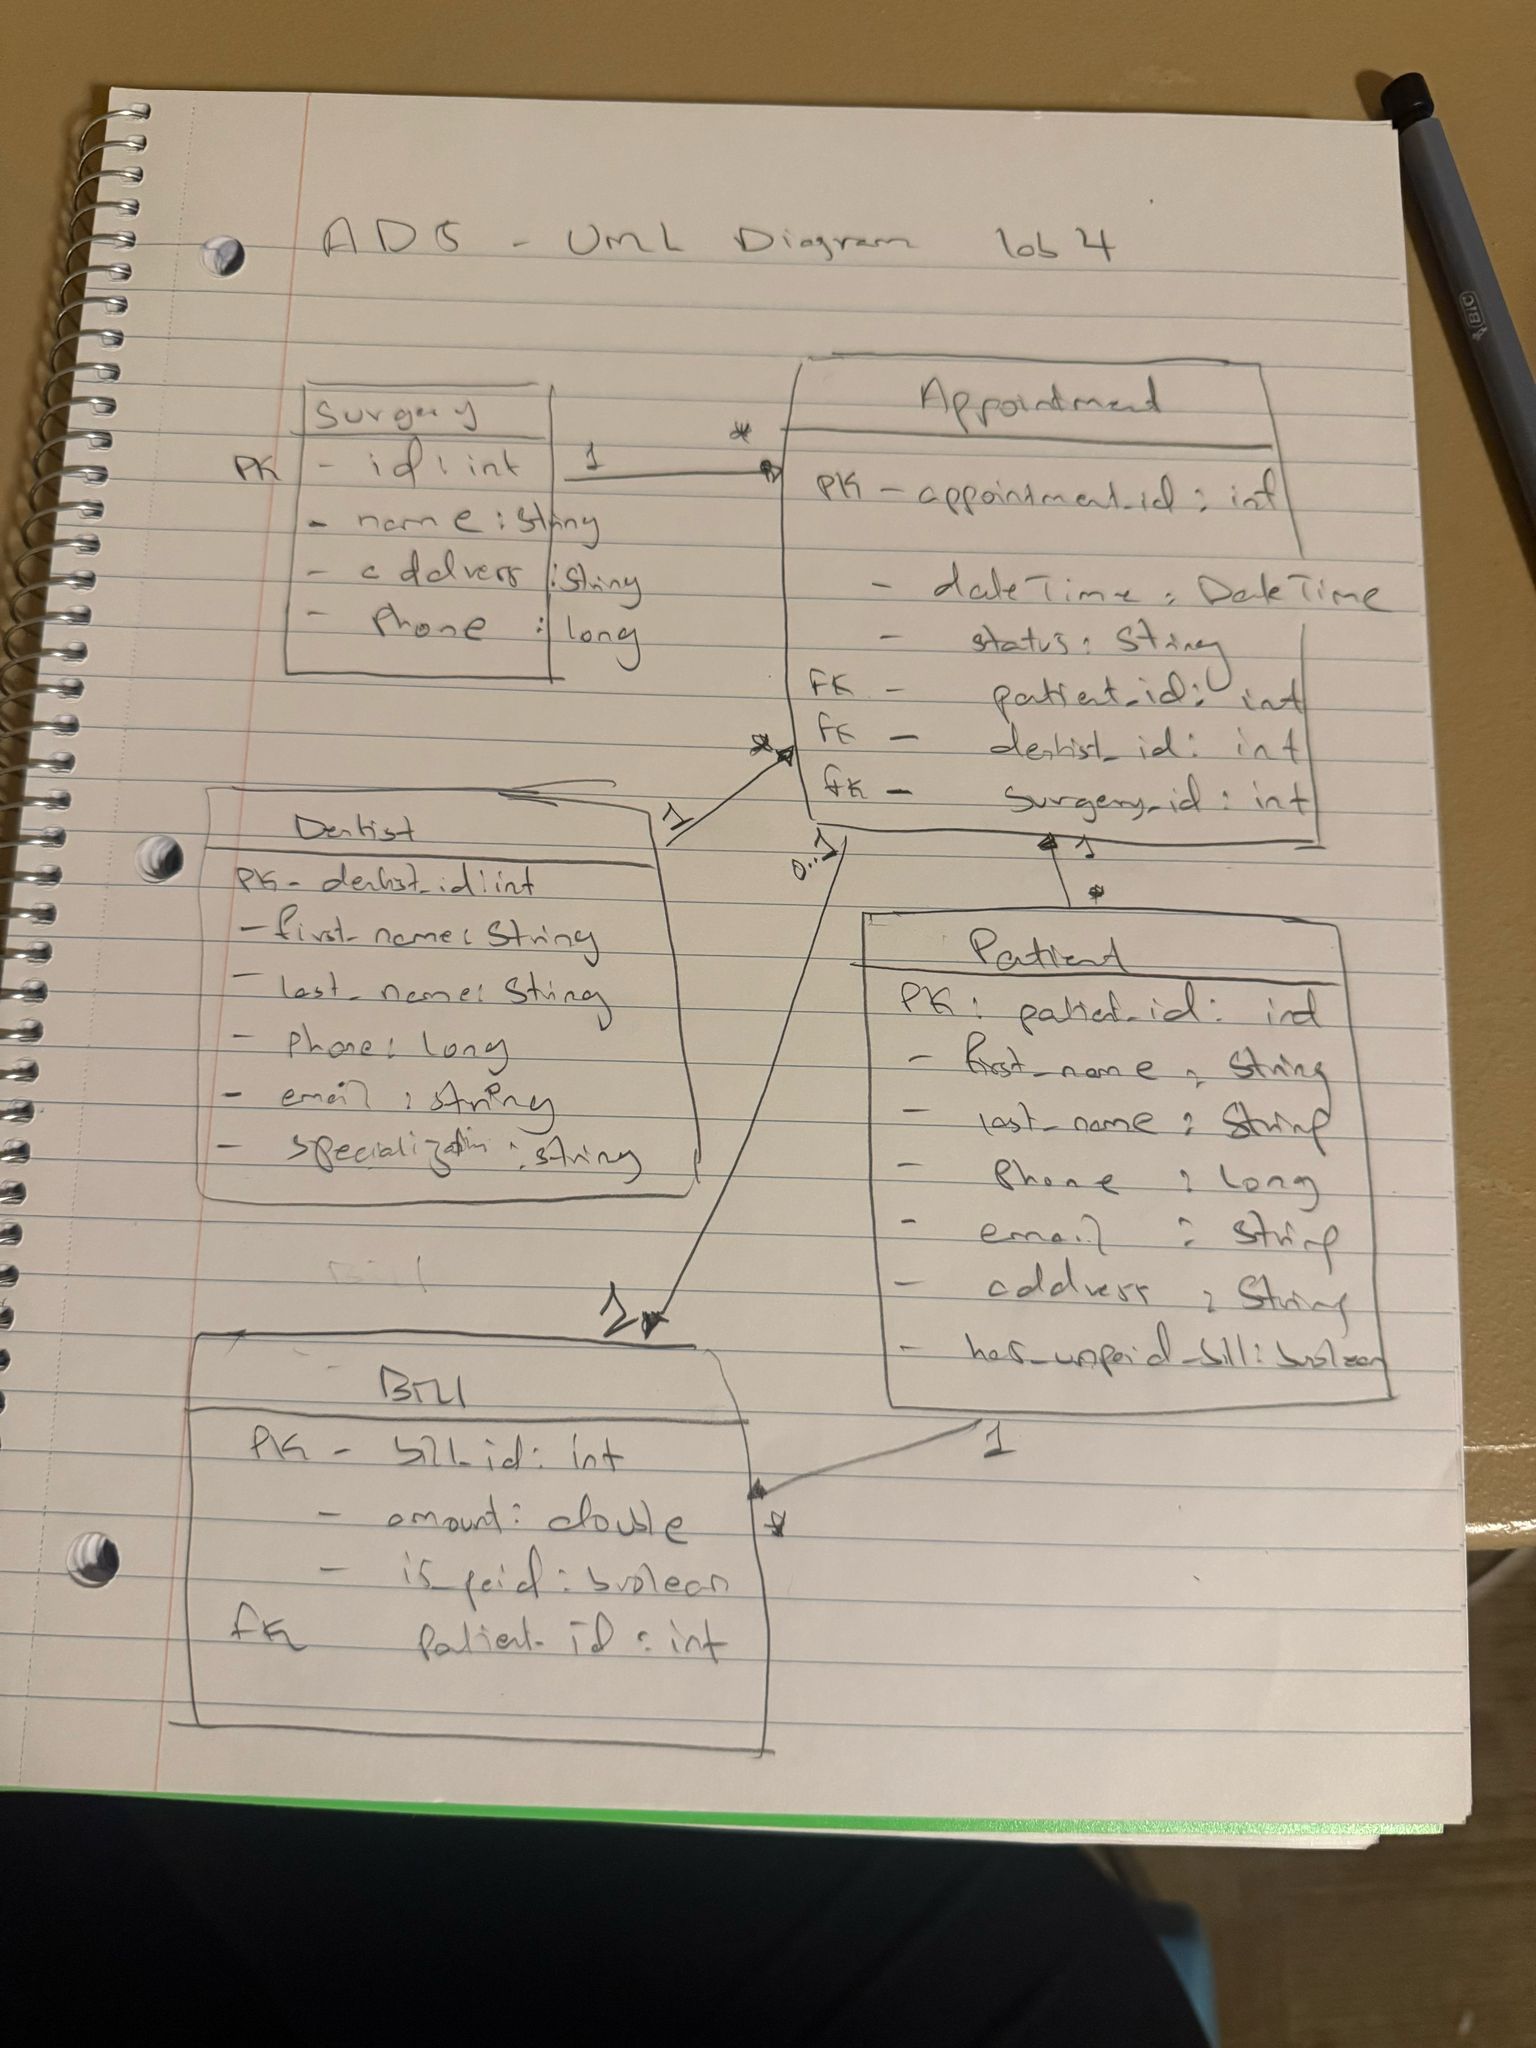 ADS - UML Diagram lob 4
Surgery
PK - id : int
- name : String
- address : String
- Phone : long
1 *
Appointment
PK - appointment_id : int
- dateTime : DateTime
- status : String
FK - patient_id : int
FK - dentist_id : int
FK - surgery_id : int
1 *
0..1
1
*
Dentist
PK - dentist_id : int
- first_name : String
- last_name : String
- phone : Long
- email : string
- specialization : string
Patient
PK : patient_id : int
- first_name : String
- last_name : String
- Phone : Long
- email : String
- address : String
- has_unpaid_bill : boolean
1
Bill
PK - bill_id : int
- amount : double
- is_paid : boolean
FK patient_id : int
1
*
BIC